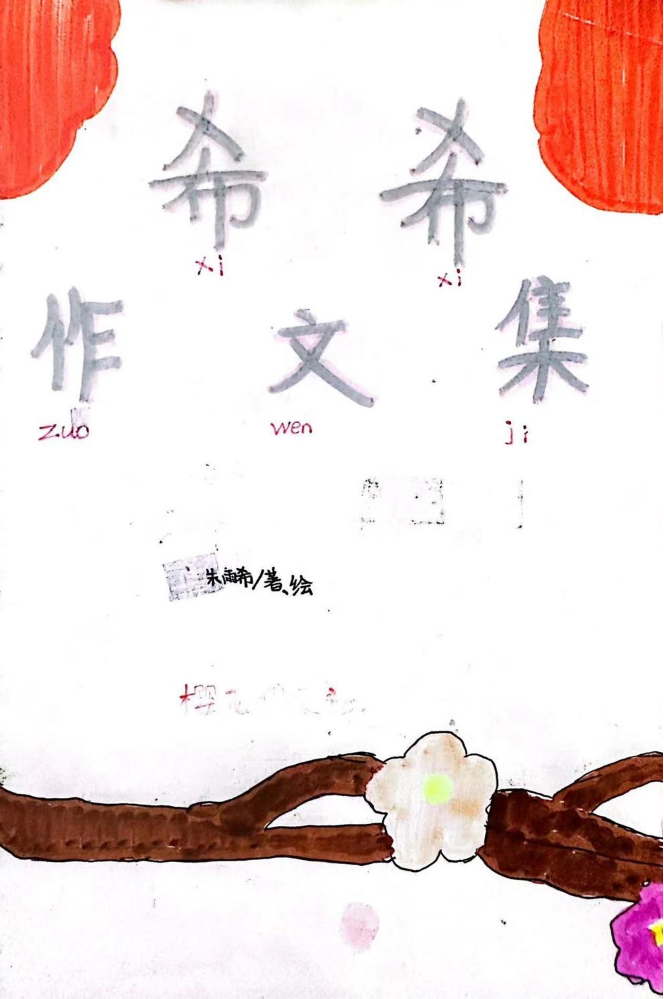 希希
xi xi
作文集
zuo wen ji
朱雨希/著、绘
樱花